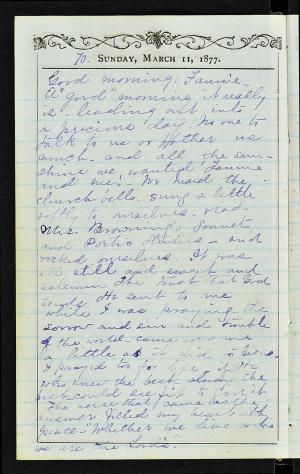 70. SUNDAY, MARCH 11, 1877.
Good morning, Fannie -
A "good" morning it really
is - leading out into
a precious day. No one to
talk to us or bother us
much - and all the sun-
shine we wanted! Fannie
and me! We heard the
church bells, sung a little
softly to ourselves, read
Mrs. Browning's Sonnets
and Poetic Studies - and
rocked ourselves. It was
all still and sweet and
solemn. The that God
sends He sent to me
while I was praying. The
sorrow and sin and trouble
of the world - came over me
a little as it did to Jesus.
I prayed to for life, if He
who knew the best, the
best could see fit to it
The verse that came as the
answer filled my heart with
peace - "Whether we live or die
we are the Lord's".